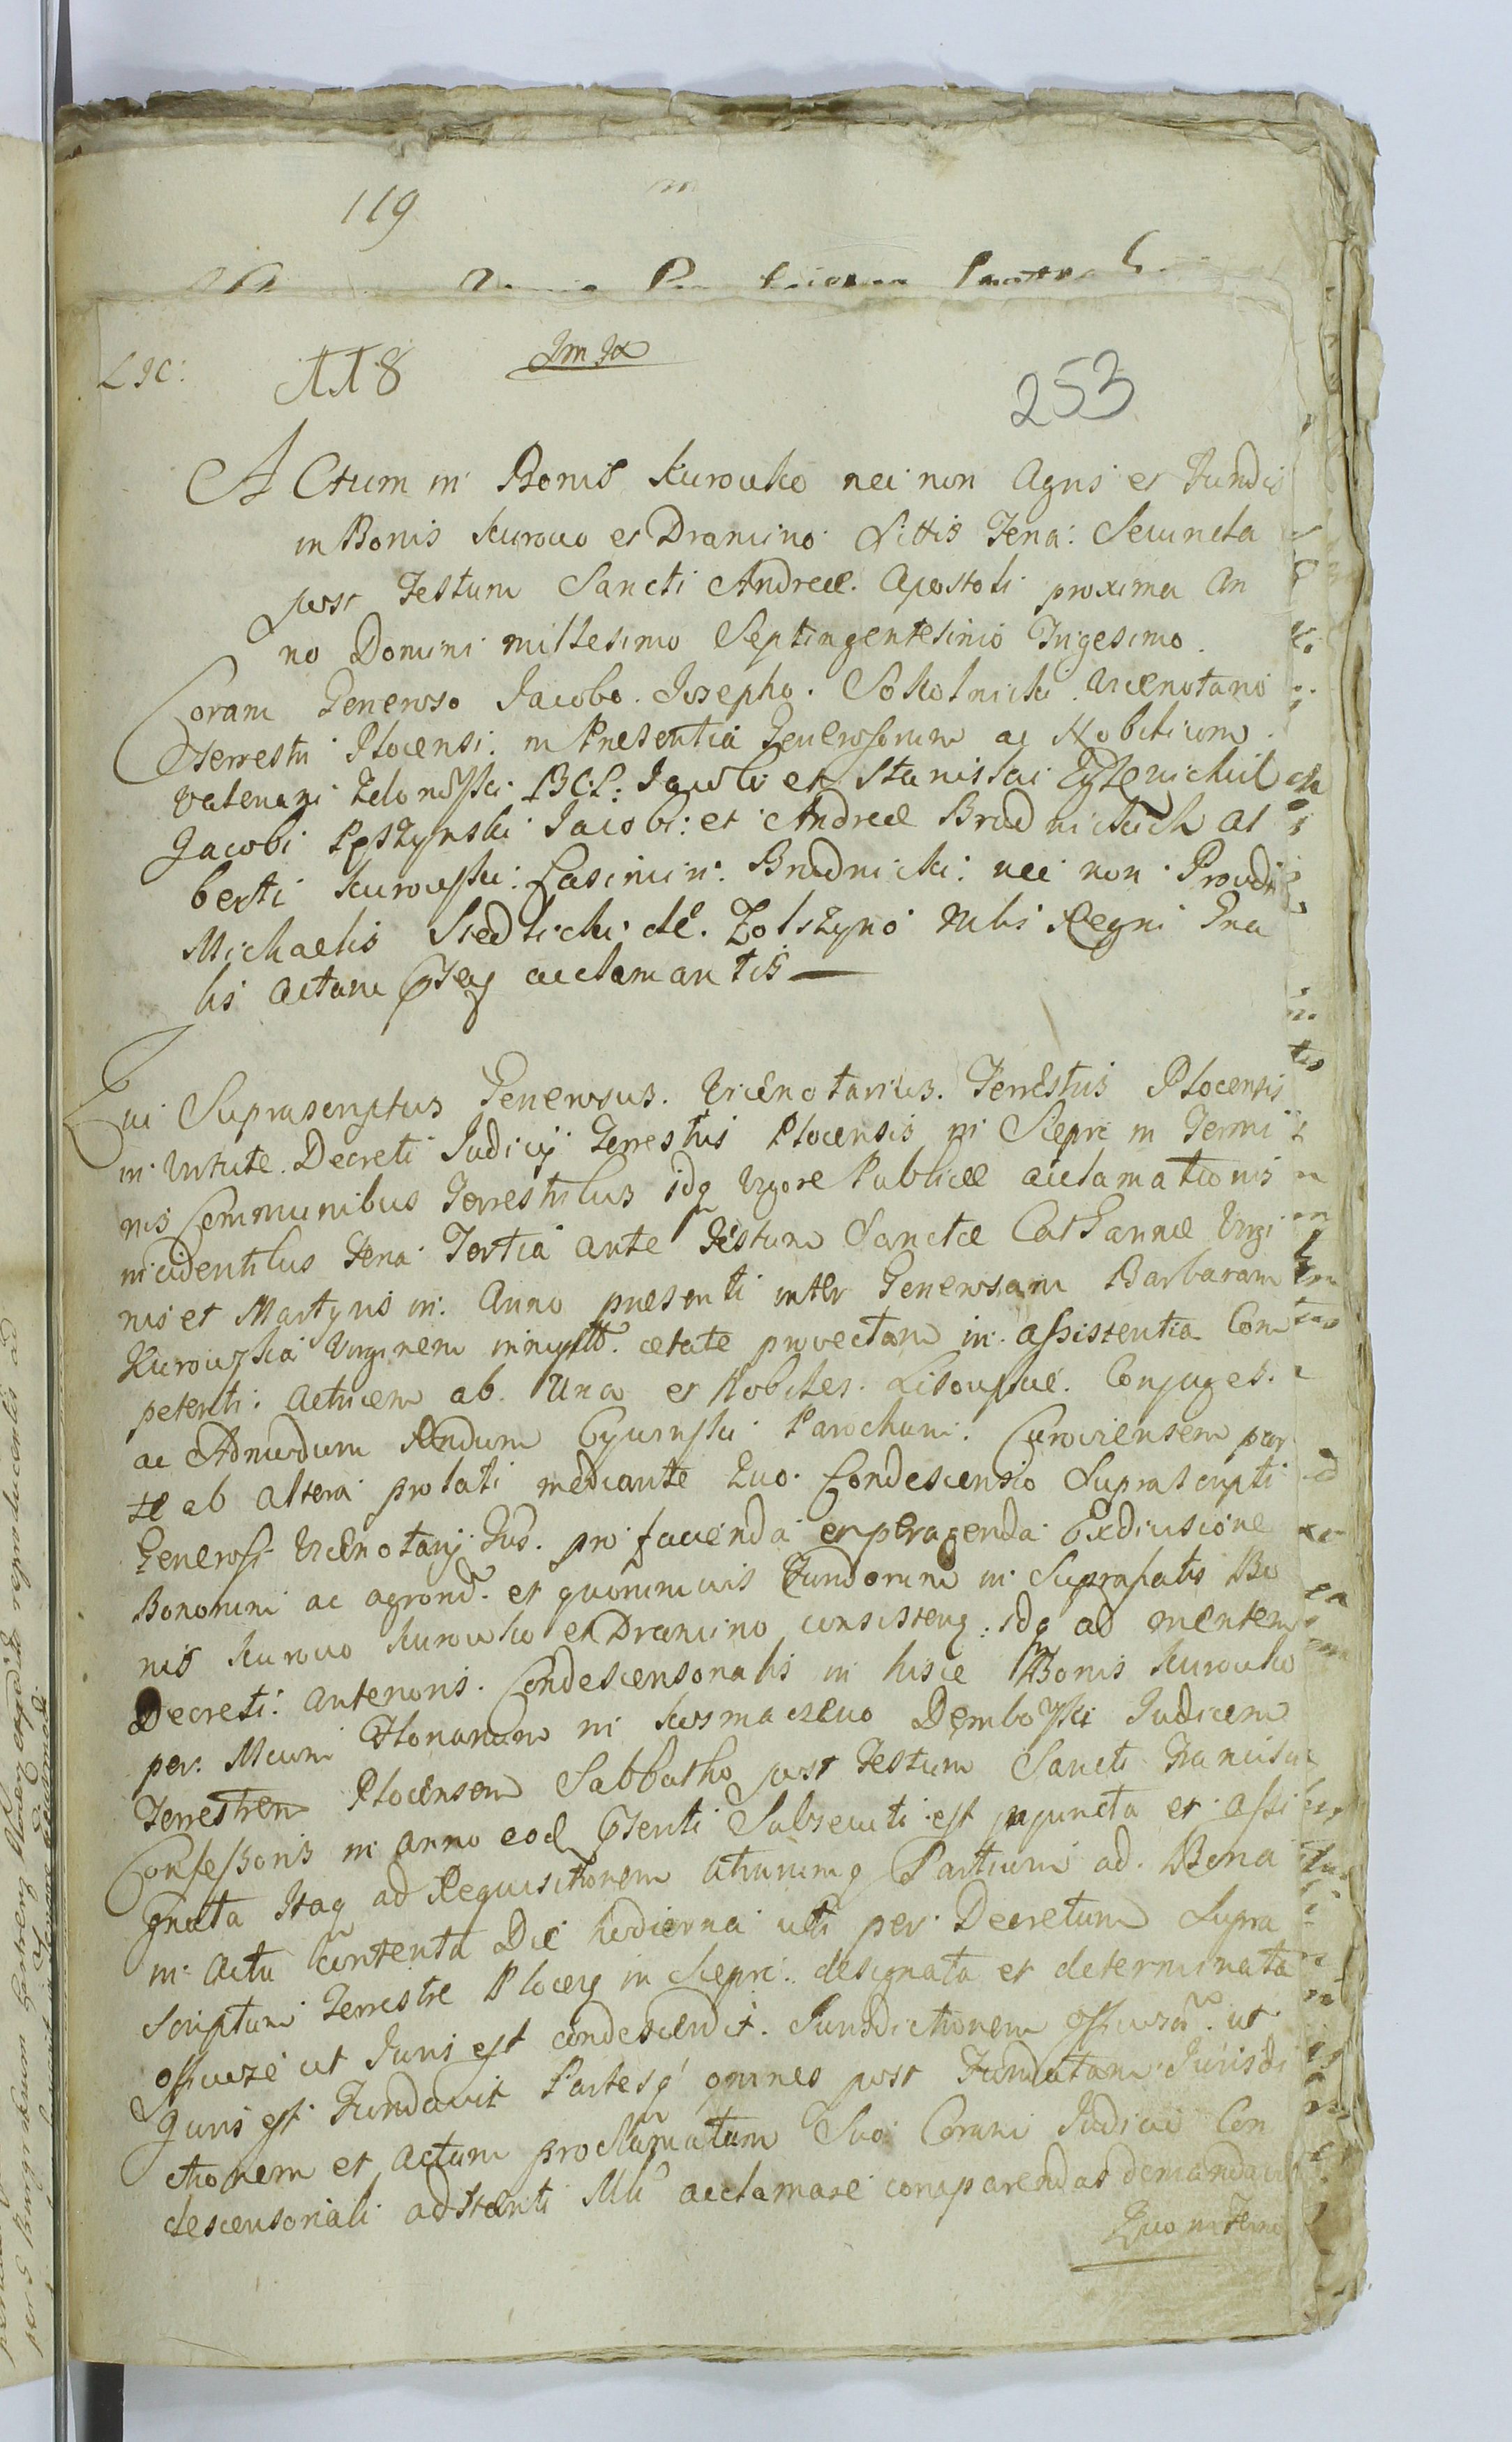 119
LIC:
118
253
ACtum in Bonis Kurowko nec non Agris et Fundis
in Bonis Kurowo et Dramino Sittis Feria: Secunda
post Festum Sancti Andreæ. Apostoli proxima An
no Domini millesimo Septingentesimo Trigesimo.
Coram Generoso Jacobo. Josepho. Sokolnicki Vicenotario
Terrestri Plocensi. in Presentia Generosorum ac Nobilium.
Valeriani Zelonÿski BCP: Jacobi et Stanislai
Jacobi Jacobi: et Andreæ Brudnickich Al
berti Kurowski: Casimiri: Brudnicki: nec non Providi
Michaelis Siedlicki de. Zolszyno Mlis Regni Gna
lis actum acclamantis
Qui Suprascriptus Generosus. Vicenotarius. Terrestris Plocensis
in Virtute. Decreti Judicij Terrestris Plocensis in Sieprc in Termi
nis Communibus Terrestribus idq vigore Publicæ acclamationis
incidentibus Feria Tertia ante Festum Sanctæ Catharinæ Virgi
nis et Martyris in: Anno presenti inter Generosam Barbaram
Kurowska Virginem ætate provectam in assistentia Com
petenti: actricem ab. Una et Nobiles. Lisowskie. Conjuges.
ac Admodum Rndum Parochum. Curoviensem par
te ab altera prolati mediante Quo. Condescensio Suprascripti
Generosi Vicenotarij pro facienda et peragenda Exdivisione
Bonorum ac agrorum. et quorumvis Fundorum in Suprafatis Bo
nis Kurowo Kurowko et Dramino consisten: idq ad mentem
Decreti: anterioris. Condescensorialis in hisce Bonis Kurowko
per. Mcum Florianum in Kosmaczewo Dembowski Judicem
Terrestrem Plocensem Sabbatho post Festum Sancti Francisci
Confessoris in anno eod Subsecuti est injuncta et assi
gnata Itaq ad Requisitionem utrarumq Partium ad. Bona
in Actu contenta Die hodierna uti per Decretum Supra
scriptum Terrestre Plocen in Siepr. designata et determinata
officiose ut Juris est condescendit. Jurisdictionem ut
Juris est Fundavit Partesq omnes post Fundatam Jurisdi
ctionem et actum proclamatum Suo Coram Judicio Con
descensoriali adstanti Mli acclamare comparendas demandavit
Quo in Termi